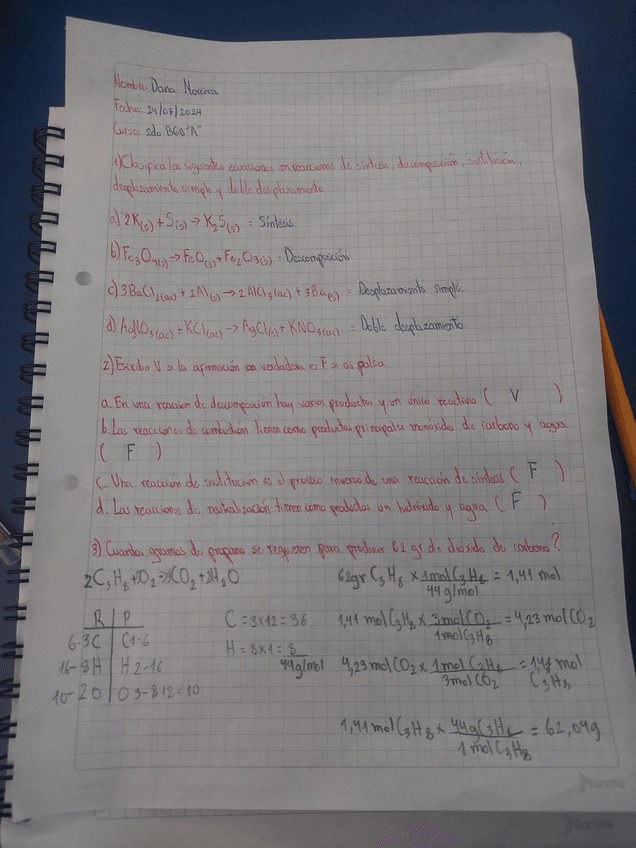 Nombre: Dana Moreira
Fecha: 24/07/2024
Curso: 2do BGU "A"
1) Clasifica las siguientes ecuaciones en reacciones de síntesis, descomposición, sustitución,
desplazamiento simple y doble desplazamiento
a) 2K(s) + S(s) → K₂S(s) = Síntesis
b) Fe₃O₄(s) → FeO(s) + Fe₂O₃(s) = Descomposición
c) 3BaCl₂(ac) + 2Al(s) → 2AlCl₃(ac) + 3Ba(s) = Desplazamiento simple
d) AgNO₃(ac) + KCl(ac) → AgCl(s) + KNO₃(ac) = Doble desplazamiento
2) Escriba V si la afirmación es verdadera o F si es falsa
a. En una reacción de descomposición hay varios productos y un único reactivo ( V )
b. Las reacciones de combustión tienen como productos principales monóxido de carbono y agua
( F )
c. Una reacción de sustitución es el proceso inverso de una reacción de síntesis ( F )
d. Las reacciones de neutralización tienen como productos un hidróxido y agua ( F )
3) Cuantos gramos de propano se requieren para producir 62 gr de dióxido de carbono?
62gr C₃H₈ × 1mol C₃H₈ / 44 g/mol = 1,41 mol
R | P
6-3C | C1-6
16-8H | H2-16
10-2O | O3-8+2=10
C = 3×12 = 36
H = 8×1 = 8
44g/mol
1,41 mol C₃H₈ × 3mol CO₂ / 1mol C₃H₈ = 4,23 mol CO₂
4,23 mol CO₂ × 1mol C₃H₈ / 3mol CO₂ = 1,41 mol C₃H₈
1,41 mol C₃H₈ × 44g C₃H₈ / 1 mol C₃H₈ = 62,04g
norma